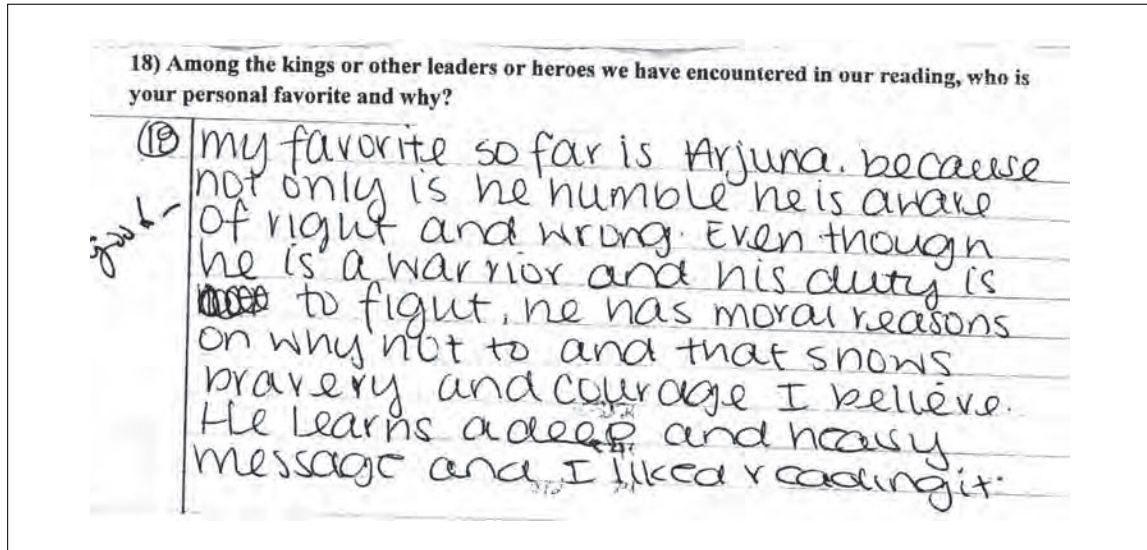 18) Among the kings or other leaders or heroes we have encountered in our reading, who is
your personal favorite and why?
18 my favorite so far is Arjuna. because
not only is he humble he is aware
of right and wrong. Even though
he is a warrior and his duty is
to fight, he has moral reasons
on why not to and that shows
bravery and courage I believe.
He learns a deep and heavy
message and I liked reading it.
good-